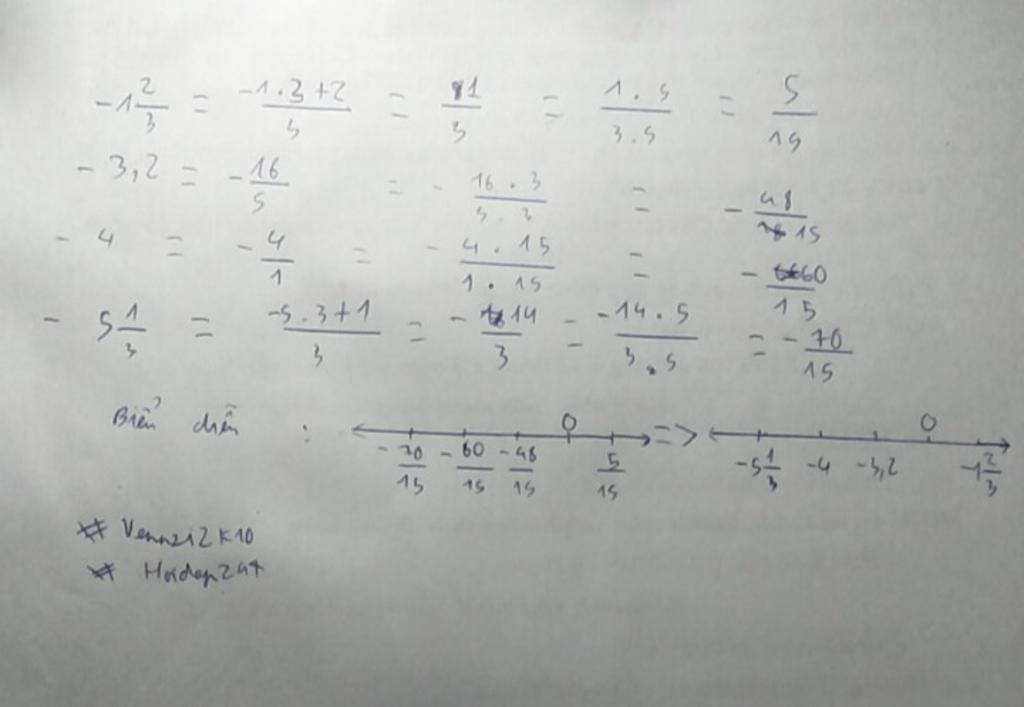 -1 2/3 = -1.3+2/3 = 1/3 = 1.5/3.5 = 5/15
- 3,2 = - 16/5 = - 16.3/5.3 = - 48/15
- 4 = - 4/1 = - 4.15/1.15 = - 60/15
- 5 1/3 = -5.3+1/3 = - 14/3 = -14.5/3.5 = - 70/15
Biểu diễn : 0 => 0
- 70/15 - 60/15 - 48/15 5/15 -5 1/3 -4 -3,2 -1 2/3
# Vennzi2k10
# Hoidap247